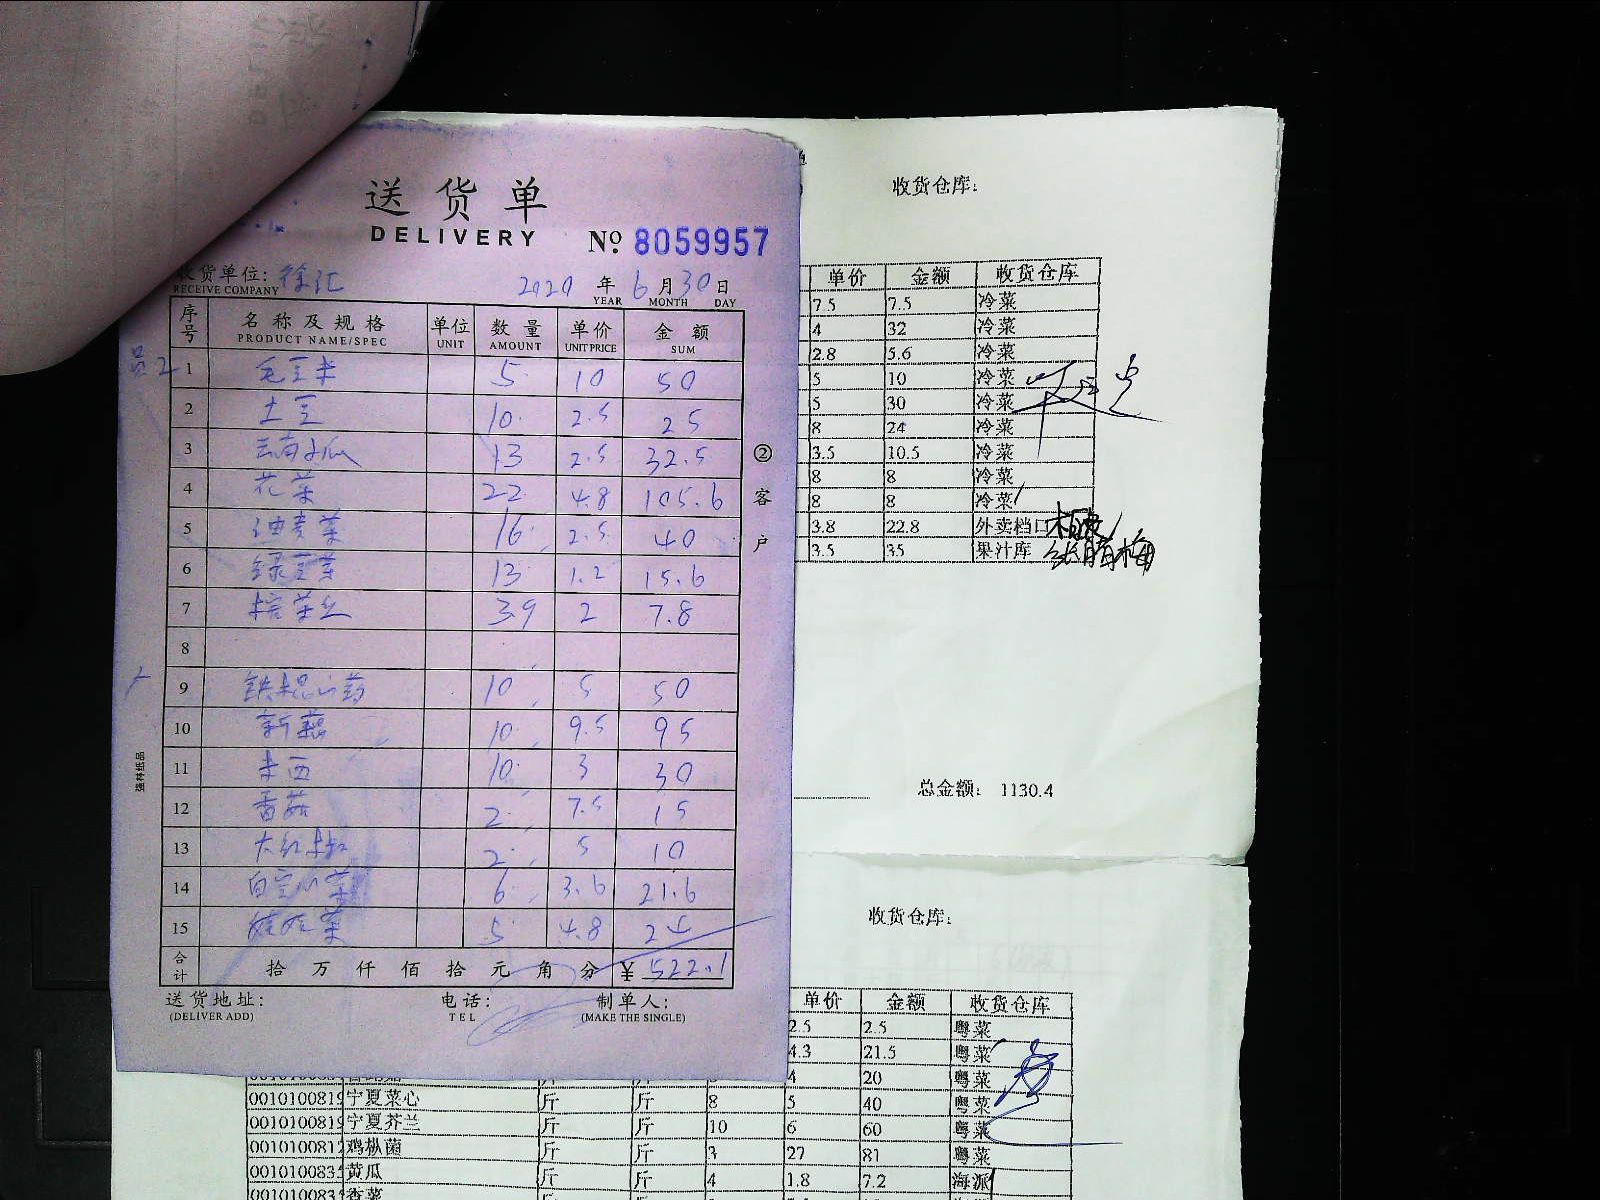 送货单
DELIVERY № 8059957
收货单位: 徐汇 2020 年 6 月 30 日
RECEIVE COMPANY YEAR MONTH DAY
序号 名称及规格 单位 数量 单价 金额
PRODUCT NAME/SPEC UNIT AMOUNT UNIT PRICE SUM
员2
1 毛豆米 5 10 50
2 土豆 10 2.5 25
3 云南小瓜 13 2.5 32.5
4 花菜 22 4.8 105.6
5 油麦菜 16 2.5 40
6 绿豆芽 13 1.2 15.6
7 榨菜丝 3.9 2 7.8
8
9 铁棍山药 10 5 50
10 新藕 10 9.5 95
11 10 3 30
12 香菇 2 7.5 15
13 大红椒 2 5 10
14 白空心菜 6 3.6 21.6
15 娃娃菜 5 4.8 24
合计 拾 万 仟 佰 拾 元 角 分 ¥ 522.1
送货地址: 电话: 制单人:
(DELIVER ADD) TEL (MAKE THE SINGLE)
②客户
强林纸品
收货仓库:
单价 金额 收货仓库
7.5 7.5 冷菜
4 32 冷菜
2.8 5.6 冷菜
5 10 冷菜
5 30 冷菜
8 24 冷菜
3.5 10.5 冷菜
8 8 冷菜
8 8 冷菜
3.8 22.8 外卖档口
3.5 35 果汁库
总金额: 1130.4
收货仓库:
单价 金额 收货仓库
2.5 2.5 粤菜
4.3 21.5 粤菜
4 20 粤菜
001010081 宁夏菜心 斤 斤 8 5 40 粤菜
001010081 宁夏芥兰 斤 斤 10 6 60 粤菜
001010081 鸡枞菌 斤 斤 3 27 81 粤菜
001010083 黄瓜 斤 斤 4 1.8 7.2 海派
001010083 香菜